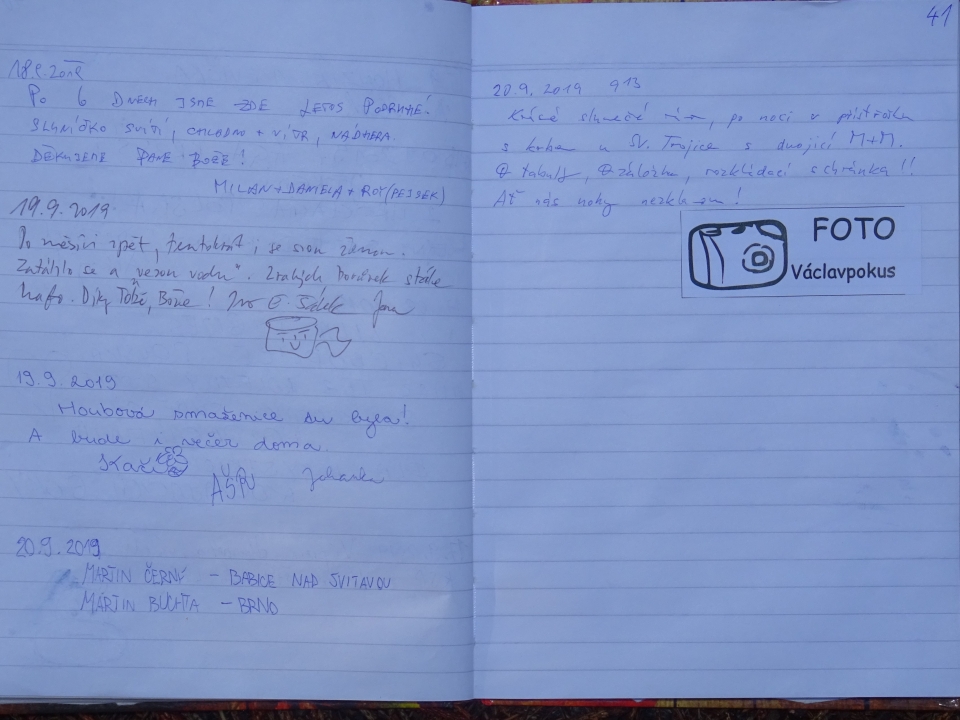 18.9.2019
PO 6 DNECH JSME ZDE LETOS PODRUHÉ.
SLUNÍČKO SVÍTÍ, CHLADNO + VÍTR, NÁDHERA.
DĚKUJEME PANE BOŽE!
MILAN+DANIELA+ROY(PEJSEK)
19.9.2019
Po měsíci zpět, tentokrát i se svou ženou.
Zatáhlo se a vezou vodu". stále
hafo. Díky Tobě, Bože! E. Jana
19.9.2019
Houbová smaženice su byla!
A bude i večer doma.
Kači
20.9.2019
MARTIN ČERNÝ - BABICE NAD SVITAVOU
MARTIN BUCHTA - BRNO
41
20.9.2019 913
Krásné slunečné ráno, po noci v přístřešku
s krbem u Sv. Trojice s dvojicí M+M.
tabulky, záložka, rozkládací schránka!!
Ať nás nohy nezklamou!
FOTO
Václavpokus